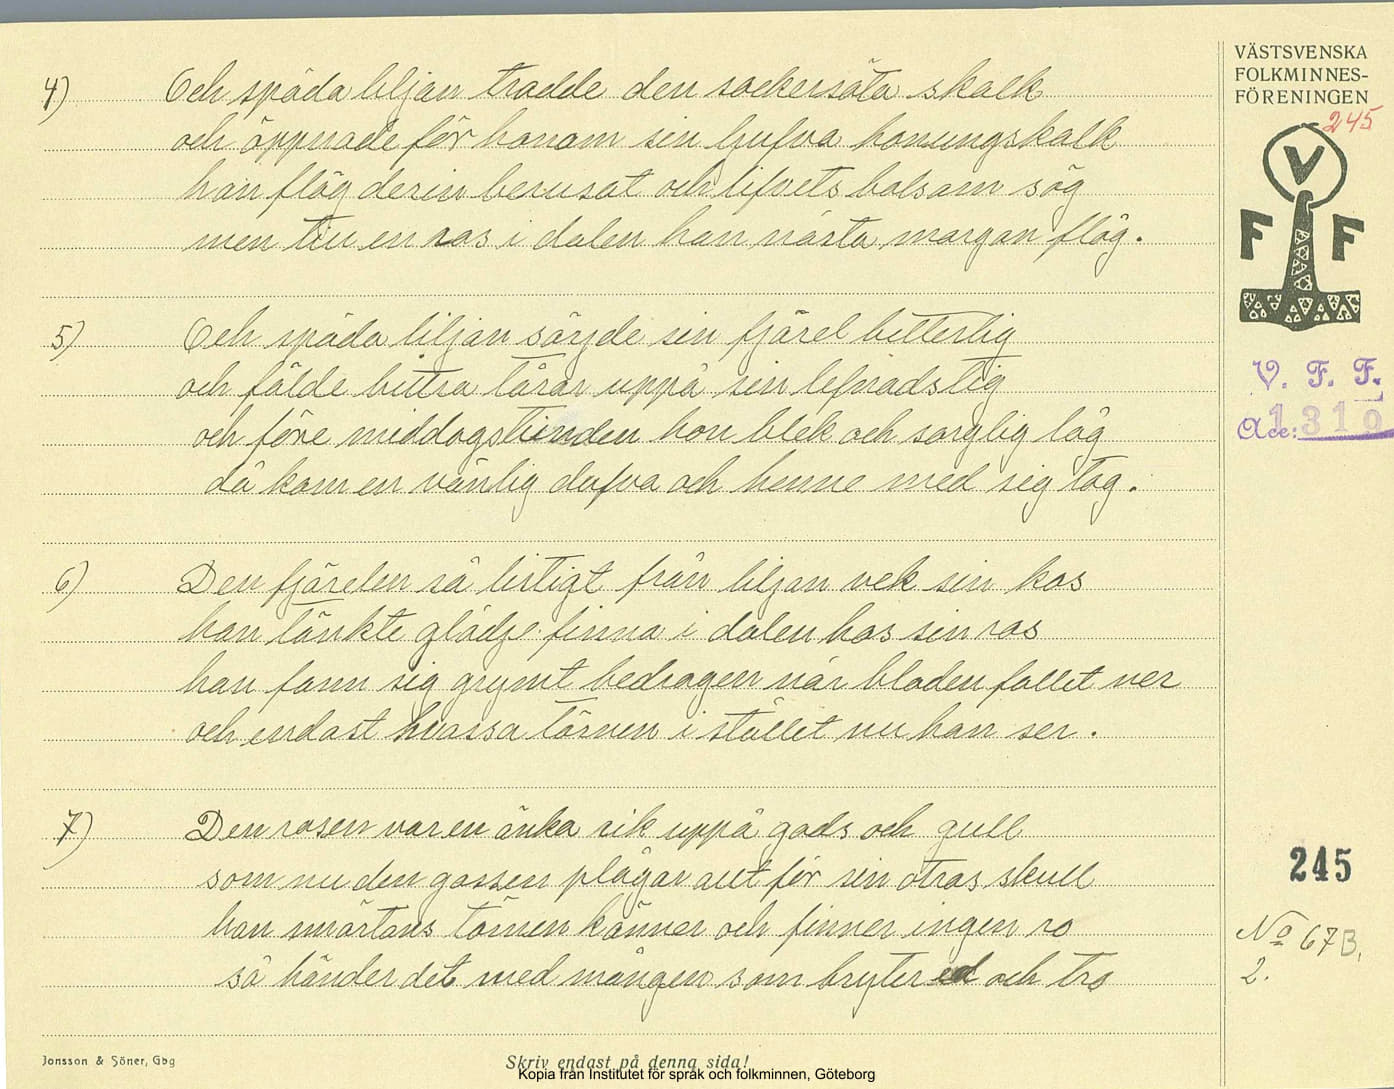 VÄSTSVENSKA
FOLKMINNES-
FÖRENINGEN
245
V
F F
V. F. F.
Acc: 1319
4) Och späda liljan trodde den sockersöta skalk
och öppnade för honom sin ljufva honungskalk
han flög derin berusat och lifvets balsam sög
men till en ros i dalen han nästa morgon flög.
5) Och späda liljan sörjde sin fjäril bitterlig
och fälde bittra tårar uppå sin lefnadstig
och före middagstunden hon blek och sorglig låg
då kom en vänlig dufva och henne med sig tog.
6) Den fjärelen så listigt från liljan vek sin kos
han tänkte glädje finna i dalen hos sin ros
han fann sig grymt bedragen när bladen fallit ner
och endast hvassa törnen i stället nu han ser.
7) Den rosen var en änka rik uppå gods och gull
som nu den gossen plågar allt för sin otros skull
han smärtans törnen känner och finner ingen ro
så händer det med mången som bryter ed och tro
245
No 67B.
2.
Jonsson & Söner, Gbg
Skriv endast på denna sida!
Kopia från Institutet för språk och folkminnen, Göteborg